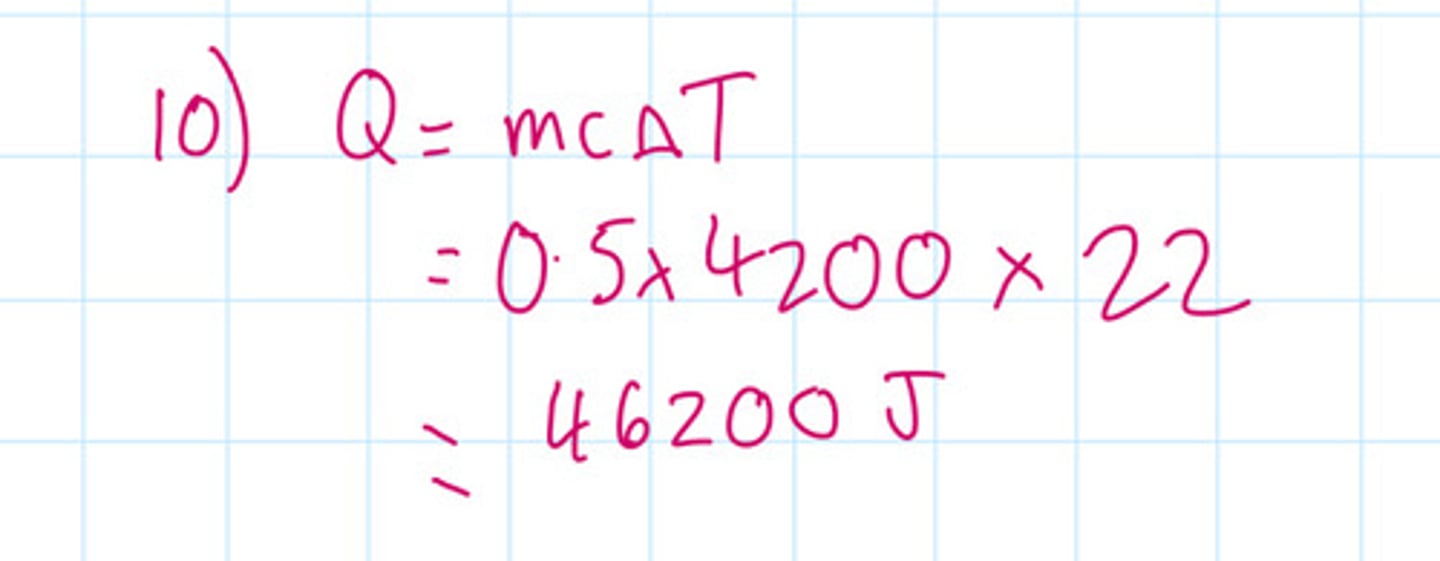 10) Q = mcΔT
= 0.5 x 4200 x 22
= 46200 J